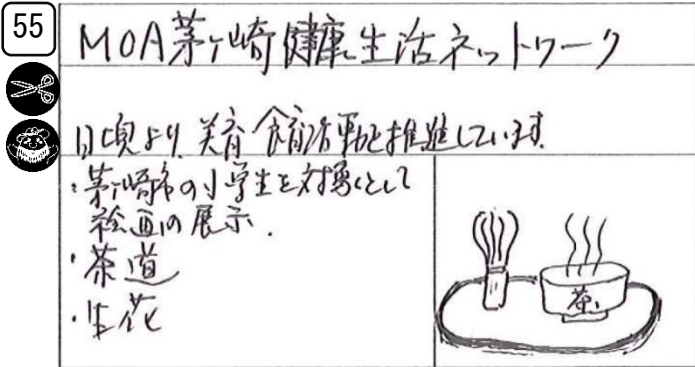 55
MOA茅ヶ崎健康生活ネットワーク
日頃より、美育、食育活動を推進しています。
・茅ヶ崎市の小学生を対象として
絵画の展示.
・茶道
・生花
茶